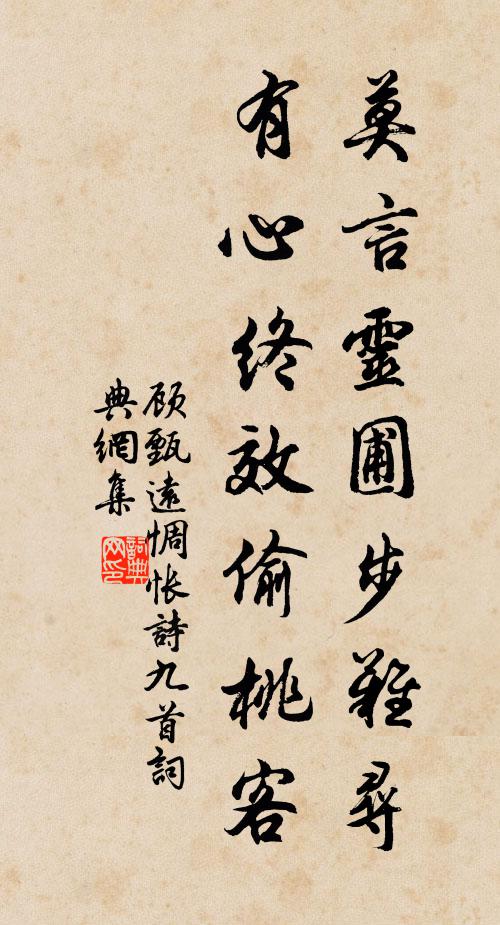 莫言靈圃步難尋
有心終效偷桃客
顾甄遠惆怅詩九首詞
典網集
詞典网印